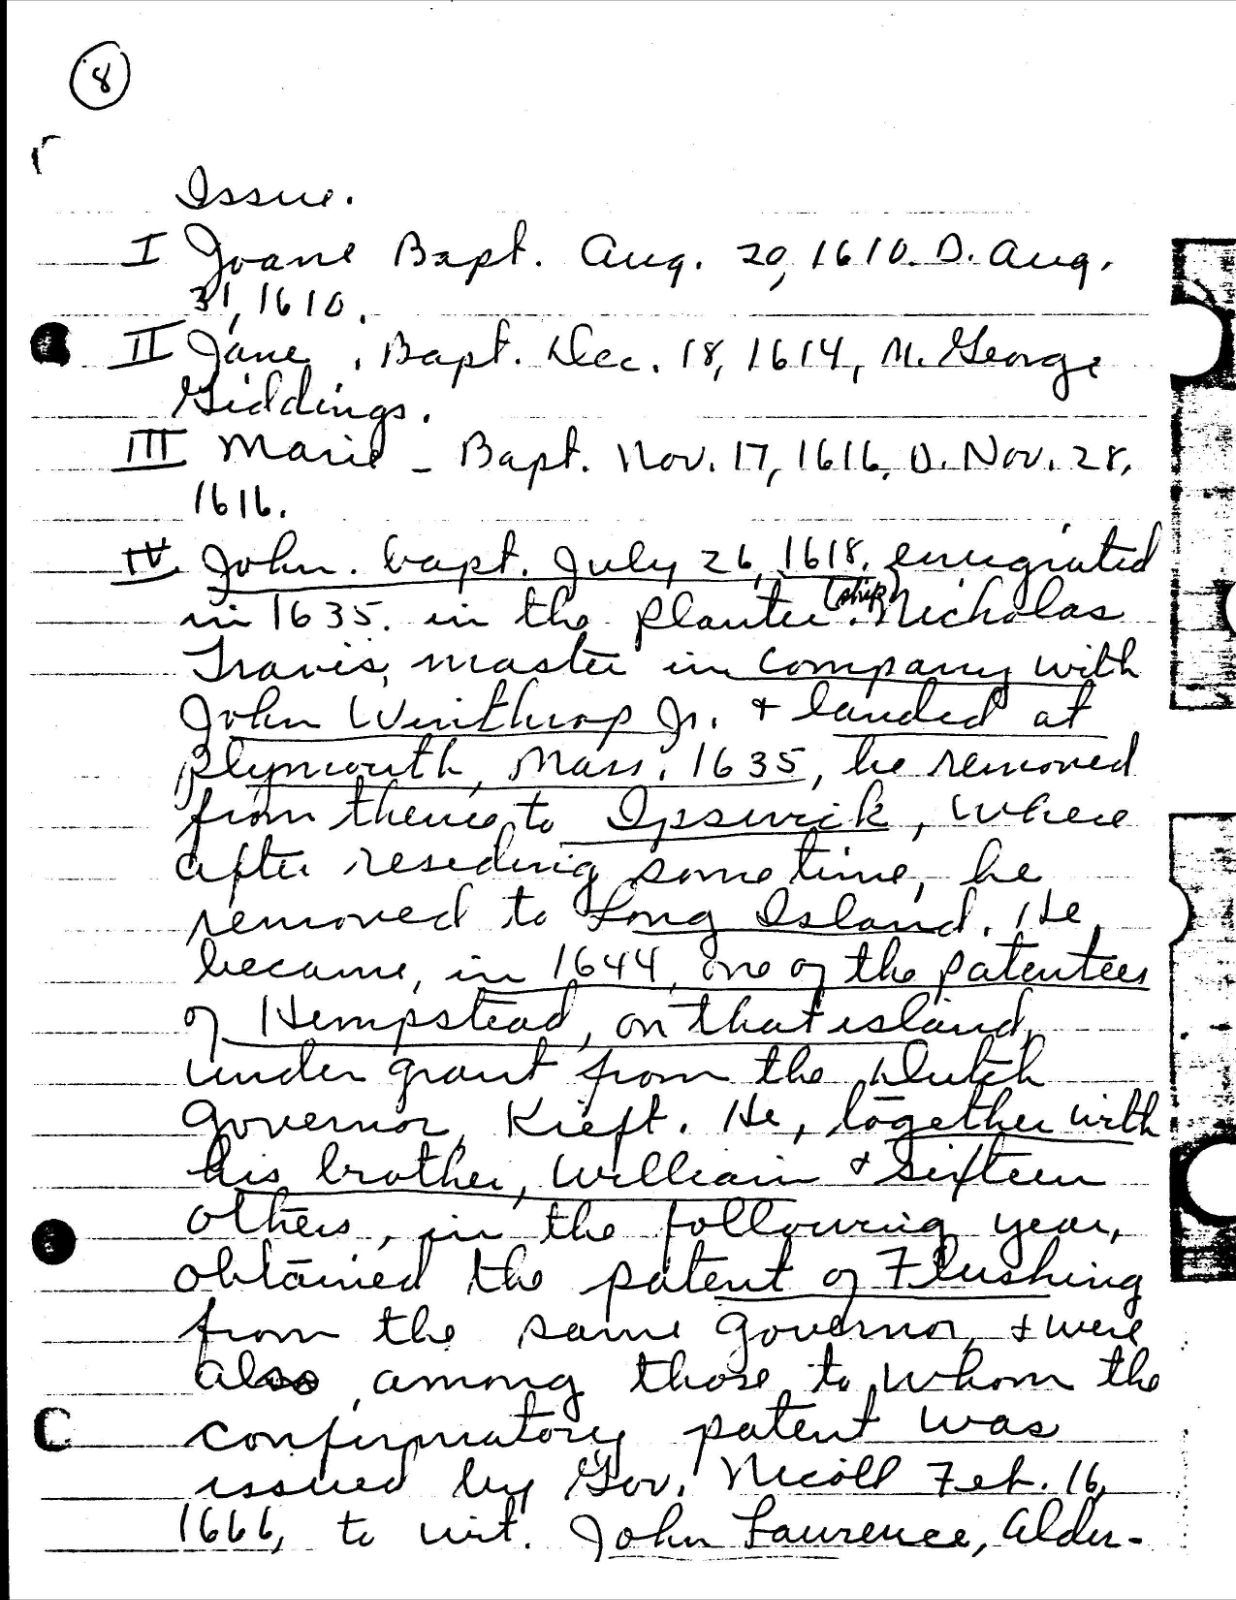 8
Issue.
I Joane Bapt. Aug. 20, 1610. D. Aug.
31, 1610.
II Jane, Bapt. Dec. 18, 1614, M. George
Giddings.
III Marie - Bapt. Nov. 17, 1616, D. Nov. 28,
1616.
IV. John. bapt. July 26, 1618. emigrated
in 1635. in the Planter (ship). Nicholas
Travis, master in company with
John Winthrop Jr. + landed at
Plymouth, Mass. 1635, he removed
from thence to Ipswick, where
after reseding some time, he
removed to Long Island. He
became, in 1644, one of the patentees
of Hempstead, on that island,
under grant from the Dutch
Governor, Kieft. He, together with
his brother, William + sixteen
others, in the following year,
obtained the patent of Flushing
from the same governor, + were
also among those to whom the
confirmatory patent was
issued by Gov. Nicoll Feb. 16,
1666, to wit. John Laurence, Alder-